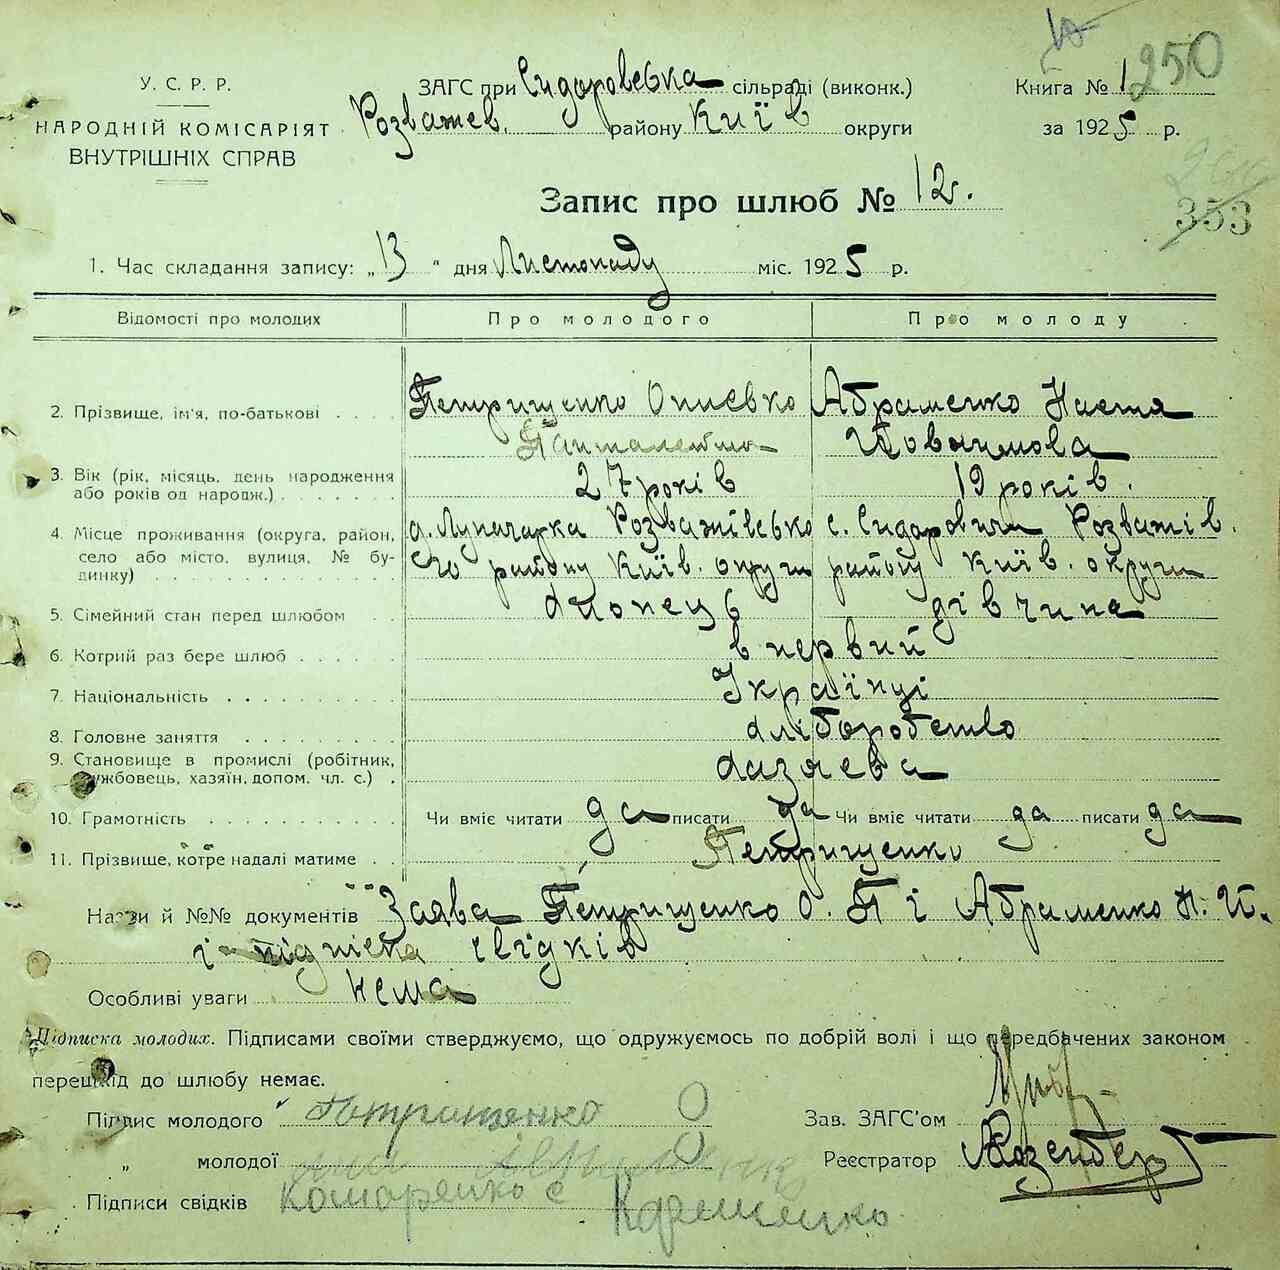 250
У. С. Р. Р.
ЗАГС при Сидоровська сільраді (виконк.)
Книга № 1
НАРОДНІЙ КОМІСАРІЯТ
Розважев. району Київ округи
за 1925 р.
ВНУТРІШНІХ СПРАВ
353
Запис про шлюб № 12.
1. Час складання запису: „13" дня Листопаду міс. 1925 р.
Відомості про молодих Про молодого Про молоду
2. Прізвище, ім'я, по-батькові . . . . Петрищенко Абраменко Настя
3. Вік (рік, місяць, день народження
або років од народж.) . . . . . . 27 років 19 років.
4. Місце проживання (округа, район, Луначарка Розважівсько с. Сидоровичи Розважів.
село або місто, вулиця, № бу- го району Київ. округи району Київ. округи
динку) . . . . . . . . . . . .
5. Сімейний стан перед шлюбом . . дівчина
6. Котрий раз бере шлюб . . . . . в первий
7. Національність . . . . . . . . Українці
8. Головне заняття . . . . . . . хліборобство
9. Становище в промислі (робітник,
службовець, хазяїн, допом. чл. с.) . хазяєва
10. Грамотність . . . . . . . . . . Чи вміє читати да писати да Чи вміє читати да писати да
11. Прізвище, котре надалі матиме . . Петрищенко
Назви й №№ документів Заява Петрищенко О. П і Абраменко Н. И.
і підписка свідків
Особливі уваги нема
Підписка молодих. Підписами своїми стверджуємо, що одружуємось по добрій волі і що передбачених законом
перешкід до шлюбу немає.
Підпис молодого Зав. ЗАГС'ом
„ молодої Реєстратор Розенберг
Підписи свідків